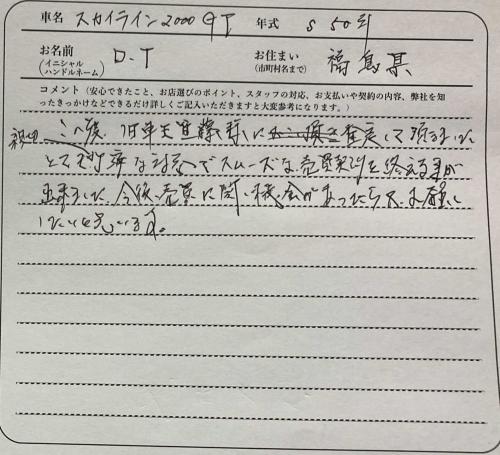 車名 スカイライン2000GT 年式 S50年
お名前 (イニシャル ハンドルネーム) D.T お住まい (市町村名まで) 福島県
コメント（安心できたこと、お店選びのポイント、スタッフの対応、お支払いや契約の内容、弊社を知
ったきっかけなどできるだけ詳しくご記入いただきますと大変参考になります。）
この度、旧車王 様に 査定して頂きました
親切 とても丁寧な対応でスムーズな売買契約を終える事が
出来ました。今後、売買に関し機会があったら又、お願いし
たいと思います。